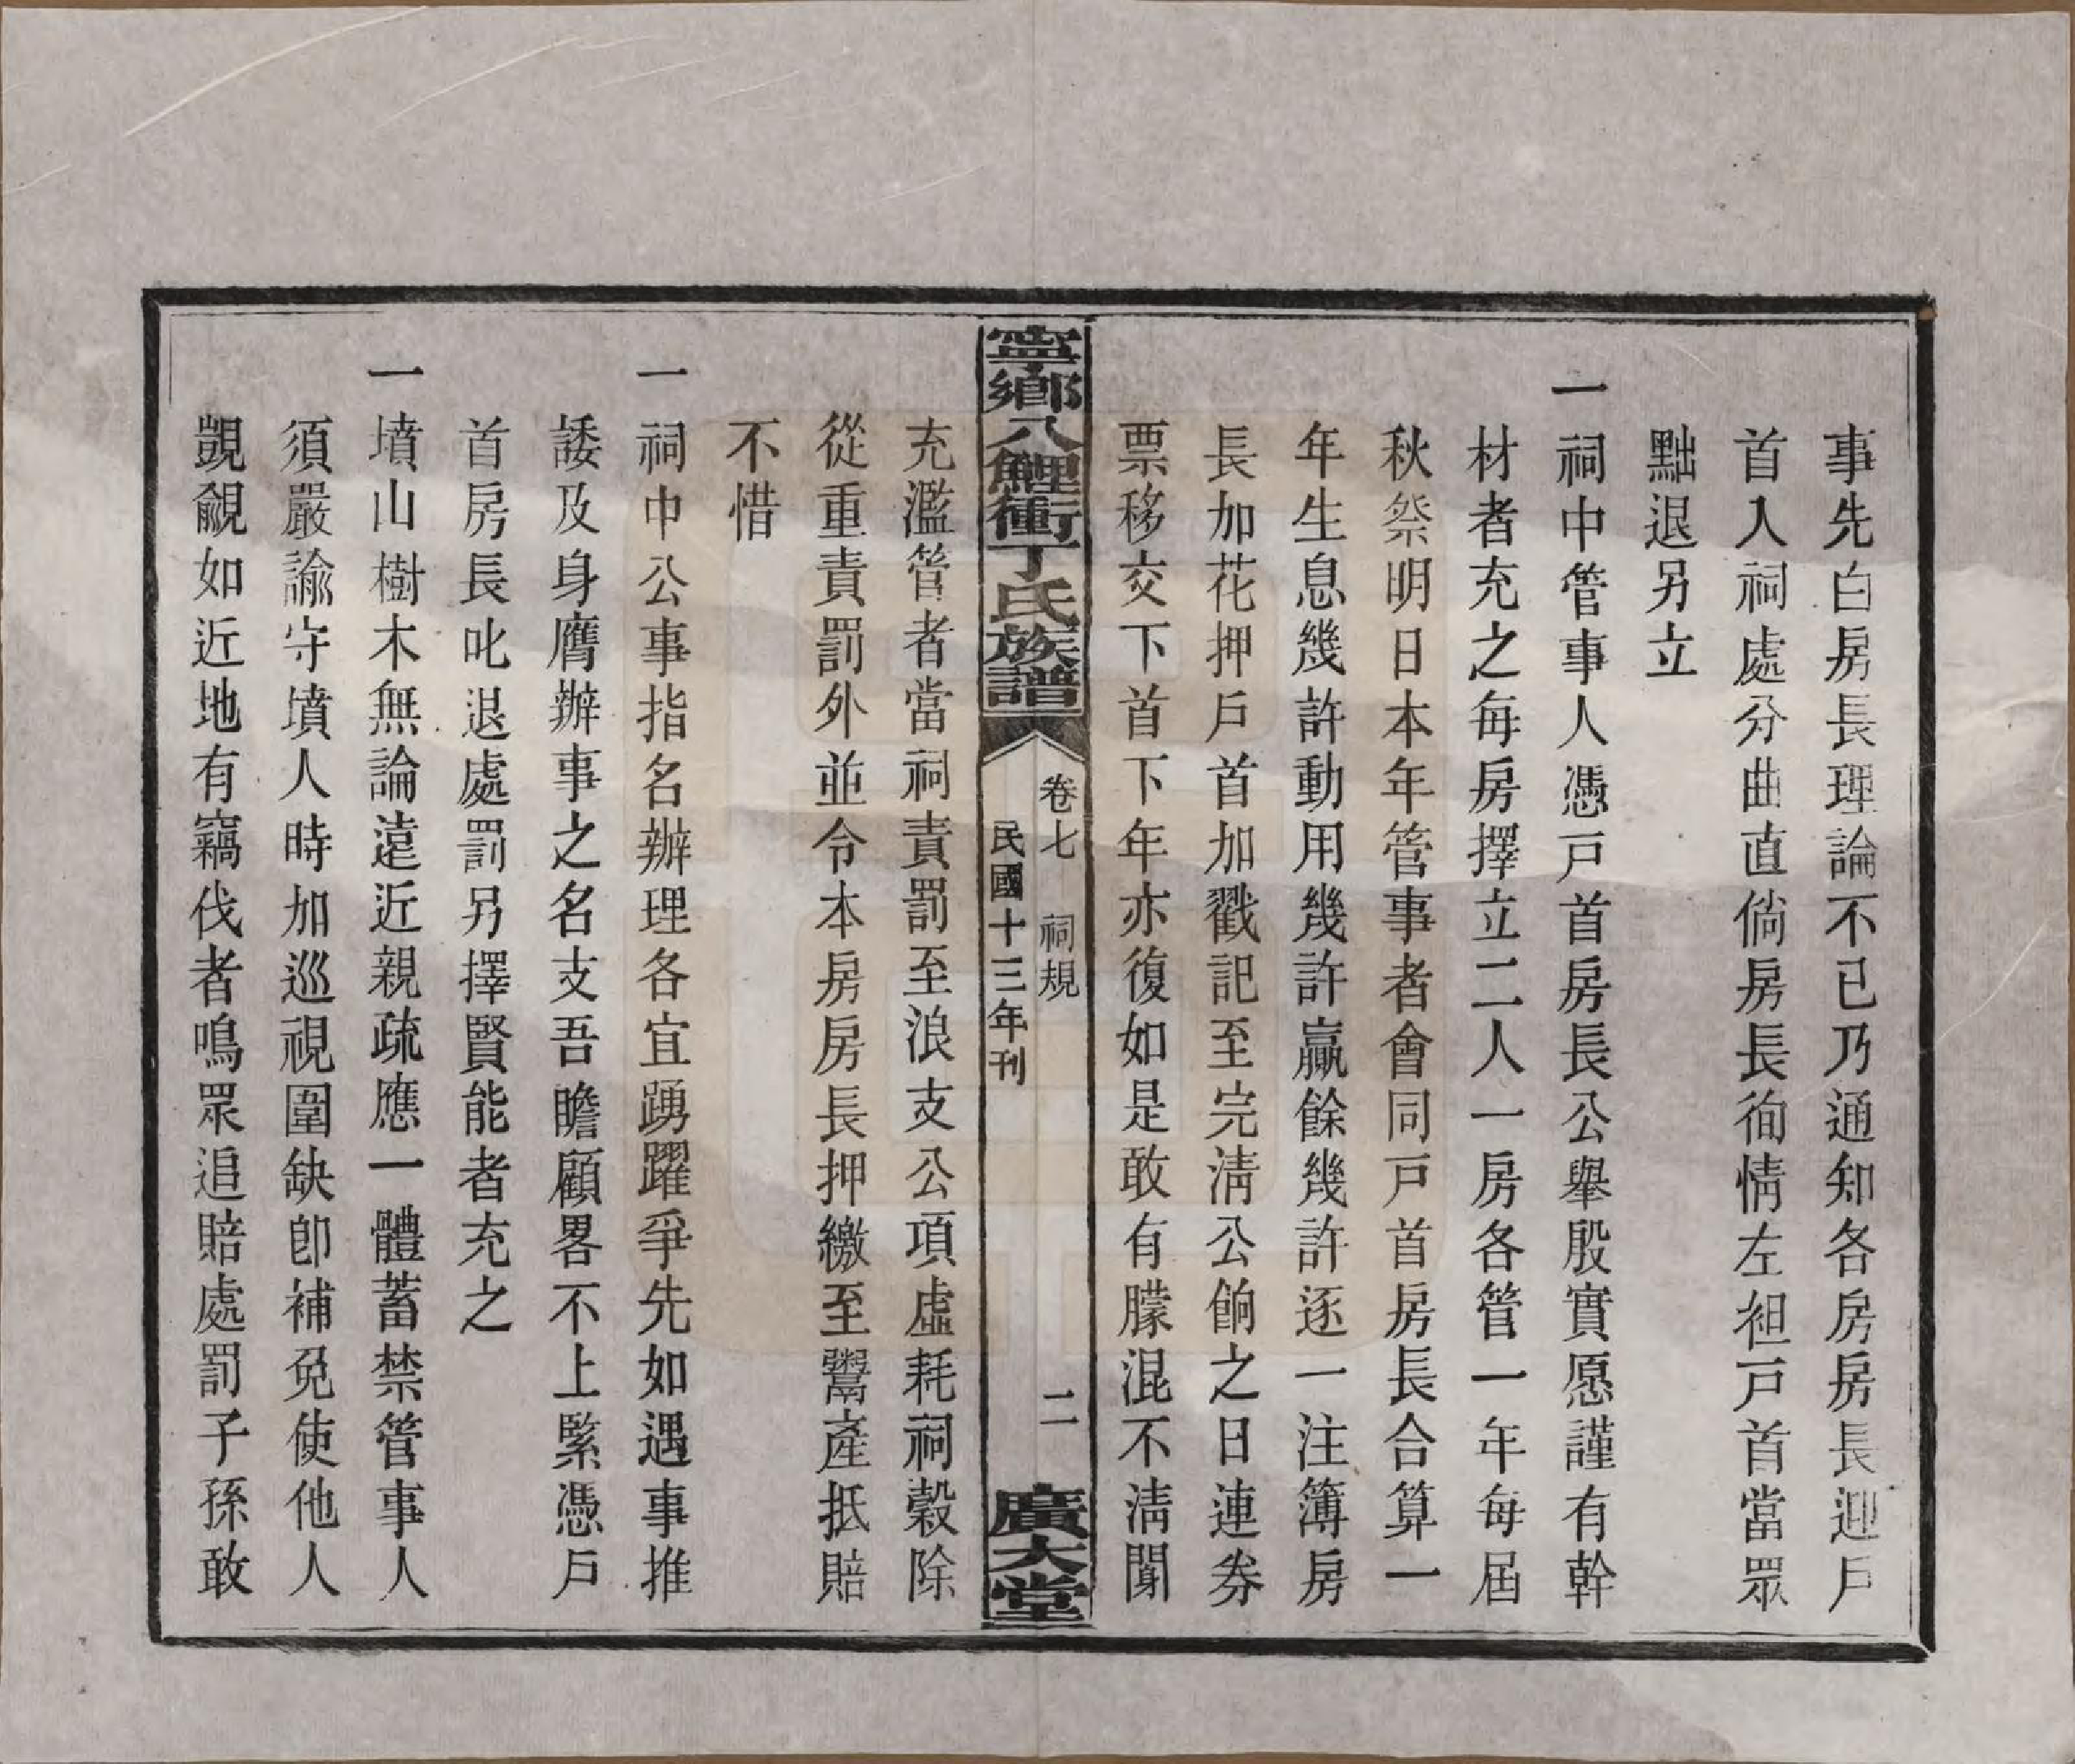 事先白房長理論不已乃通知各房房長迎戶
首入祠處分曲直倘房長徇情左袒戶首當眾
黜退另立
一祠中管事人憑戶首房長公舉殷實愿謹有幹
材者充之每房擇立二人一房各管一年每屆
秋祭明日本年管事者會同戶首房長合算一
年生息幾許動用幾許贏餘幾許逐一注簿房
長加花押戶首加戳記至完淸公餉之日連券
票移交下首下年亦復如是敢有朦混不淸闒
寧鄉八鯉衝丁氏族譜
卷七 祠規 二
民國十三年刊
廣大堂
充濫管者當祠責罰至浪支公項虛耗祠穀除
從重責罰外並令本房房長押繳至鬻產抵賠
不惜
一祠中公事指名辦理各宜踴躍爭先如遇事推
諉及身膺辦事之名支吾瞻顧畧不上緊憑戶
首房長叱退處罰另擇賢能者充之
一墳山樹木無論遠近親疏應一體蓄禁管事人
須嚴諭守墳人時加巡視圍缺卽補免使他人
覬覦如近地有竊伐者鳴眾追賠處罰子孫敢